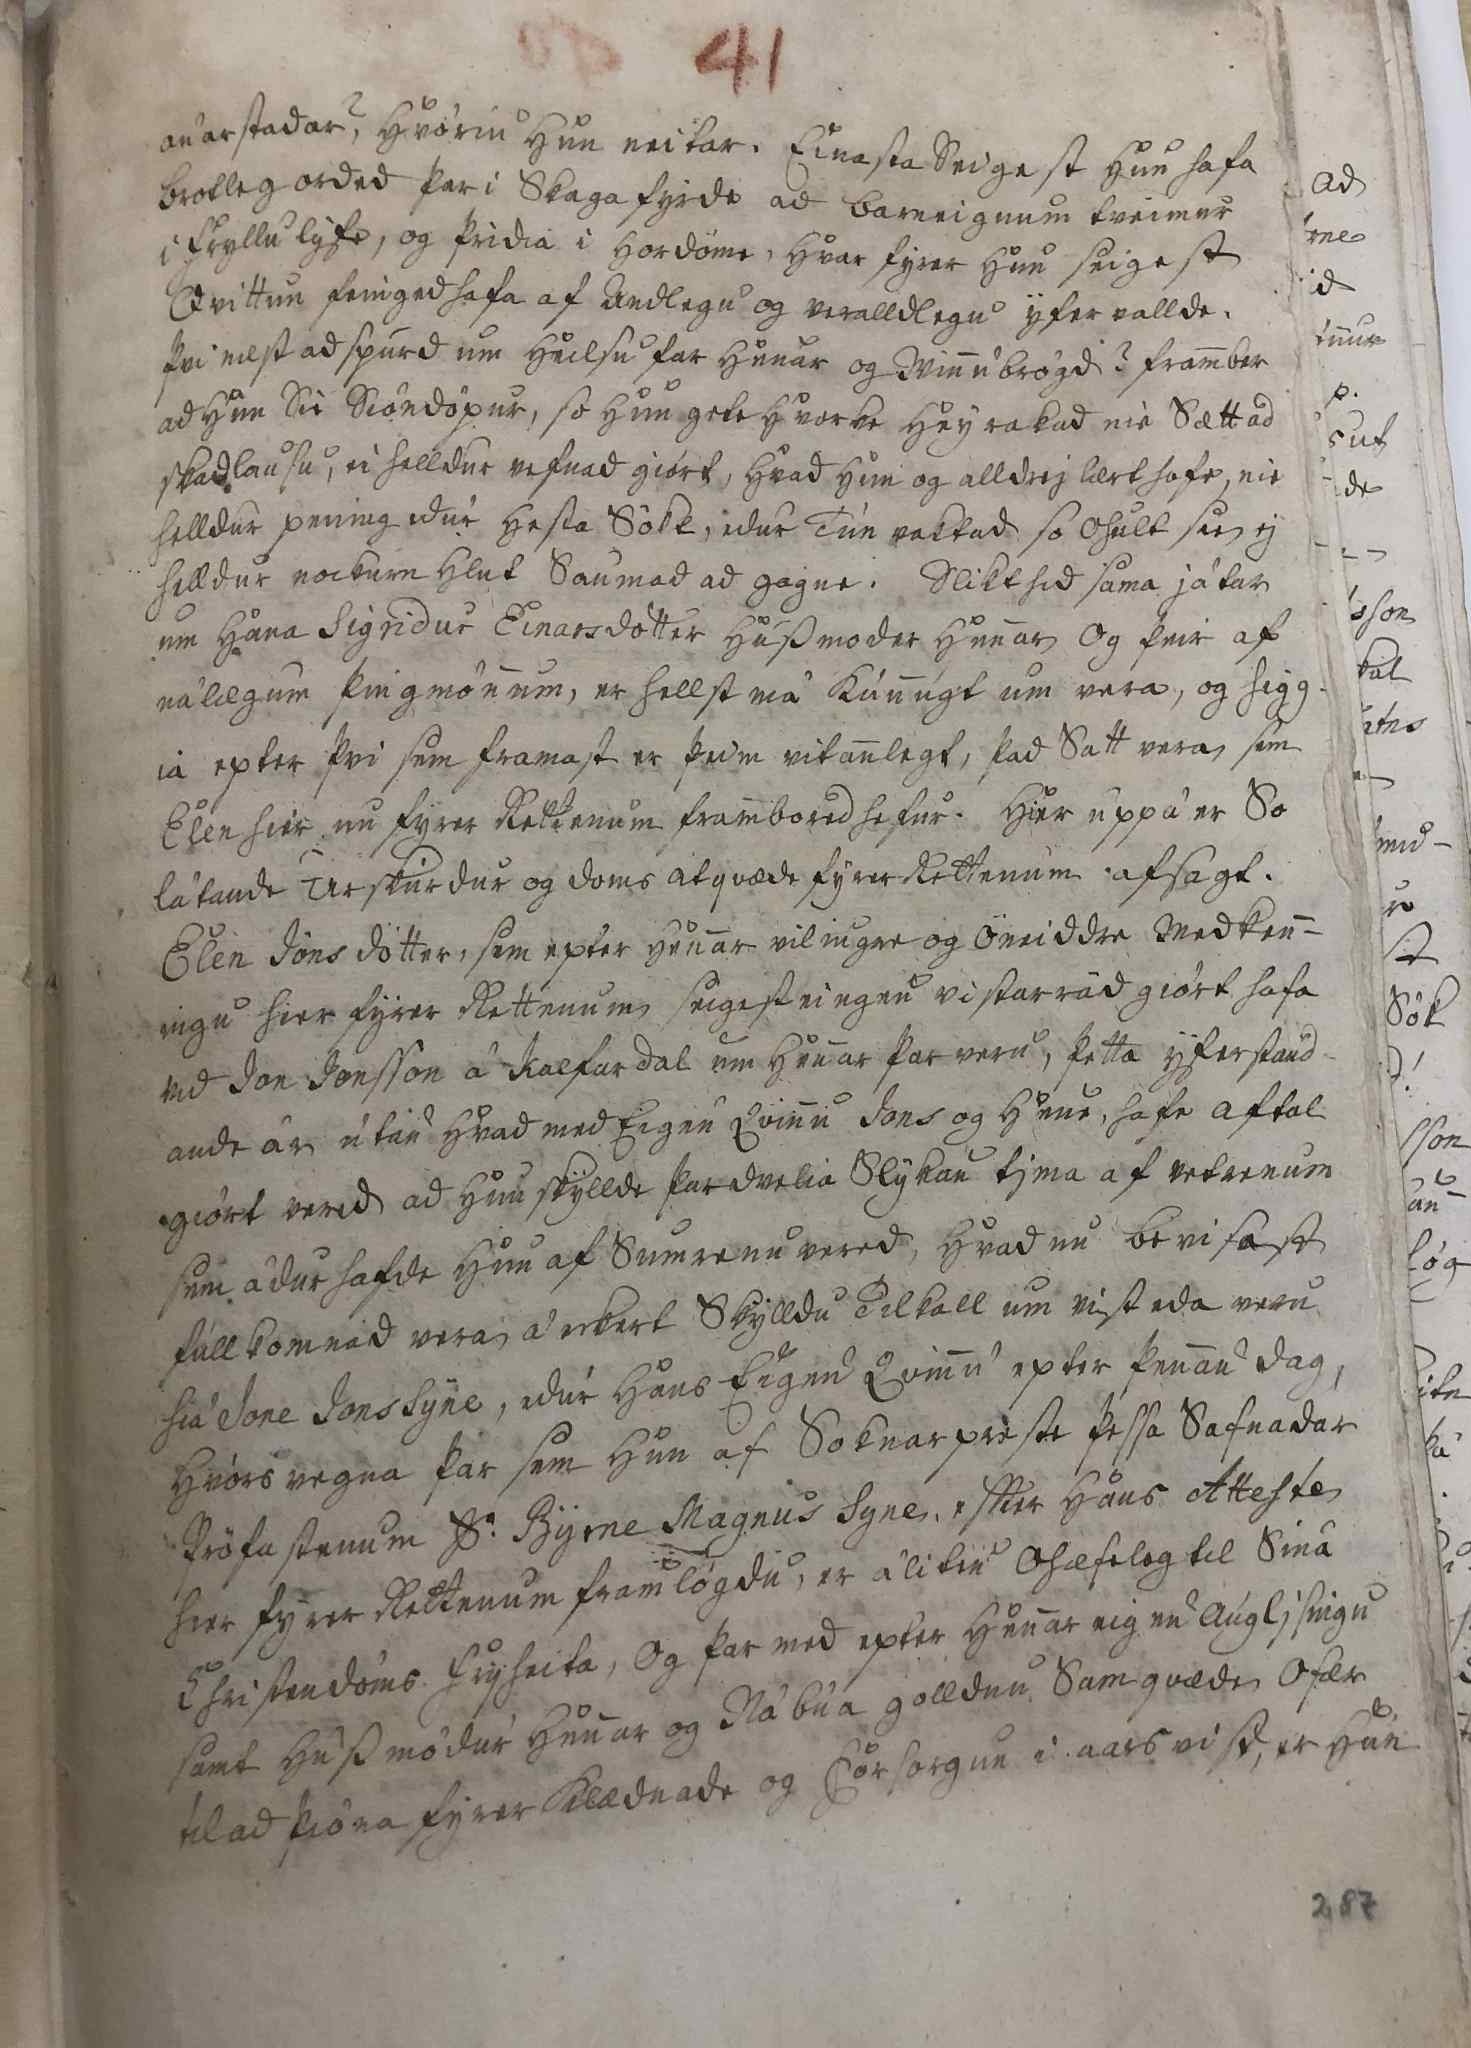 41
an̄arstadar? Hvøriu Hun neitar. Einasta Seigest Hun hafa
brotleg orded þar i Skagafyrde ad barneignum tveimur
i frillulyfe, og þridia i Hordöme, Hvar fyrer Hun seigest
Qvittun feinged hafa af Andlegu og veralldlegu yfervallde.
þvi næst ad spurd um Heilsufar Hen̄ar og Vin̄ubrøgd? fram̄ber
ad Hun Sie Sióndöpur, so Hun gete Hvorke Hey rakad nie Sætt ad
skadlausu, ei helldur vefnad giört, Hvad Hun og alldrej lært hafe, nie
helldur pening edur Hesta Sökt, edur Tún vaktad so Ohult sie, ej
helldur nockurn Hlut Saumad ad gagne. Slikt hid sama játar
um Hana Sigridur Einarsdötter Húsmoder Hen̄ar, Og þeir af
nálægum þingmön̄um, er hellst má Kun̄ugt um vera, og higg-
ia epter þvi sem framast er þeim vitan̄legt, þad Satt vera, sem
Elen hier nu fyrer Rettenum fram̄bored hefur. Hier uppá er So
látande Urskurdur og doms atqvæde fyrer Rettenum afsagt.
Elen Jóns dötter, sem epter Hen̄ar viliugre og öneiddre Medken̄-
ingu hier fyrer Rettenum, seigest eingen vistarrád giört hafa
vid Jon Jonsson á Kalfardal um Hen̄ar þarveru, þetta yferstand-
ande ár, utan Hvad med Eigen Qvin̄u Jons og Hen̄e, hafe aftal
giört vered, ad Hun skyllde þar dvelia Slykan tjma af vetrenum
sem ádur hafde Hun af Sumrenu vered, Hvad nu bevisast
fullkomnad vera, á eckert Skylldu Tilkall um vist eda veru
hiá Jone Jonssyne, edur Hans Eigen Qvin̄u epter þen̄an dag,
Hvörs vegna þar sem Hun af Soknarpreste þessa Safnadar
Prófastenum Sr. Byrne Magnus Syne, epter Hans Atteste
hier fyrer Rettenum framlögdu, er áliten Ohæfeleg til Sin̄a
Christendöms fryheita, Og þar med epter Hen̄ar eigen Auglysingu
samt Húsmödur Hen̄ar og Nábúa golldnu Samqvæde, Ofær
til ad þióna fyrer Klædnade og forsorgun i aarsvist, er Hun
287